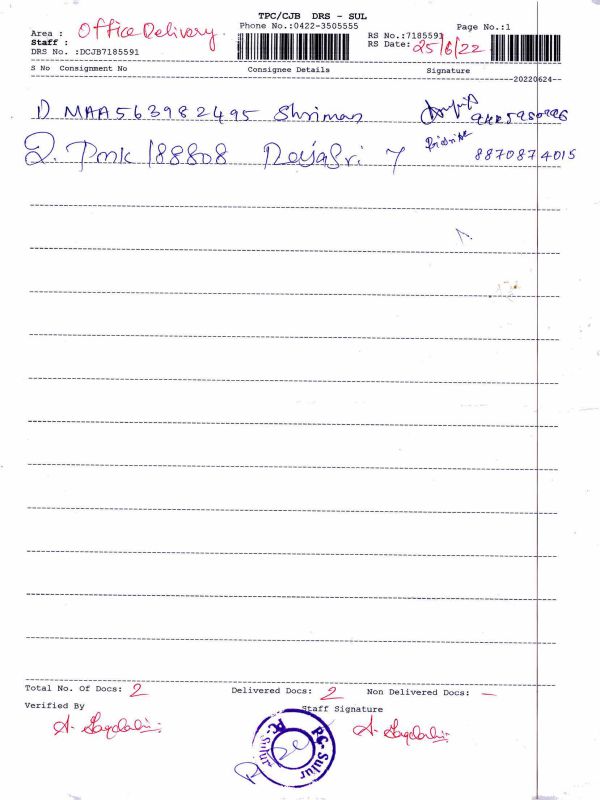 TPC/CJB DRS - SUL
Area : Office Delivery Phone No.:0422-3505555 Page No.:1
Staff : RS No.:7185591
DRS No. :DCJB7185591 RS Date: 25/6/22
S No Consignment No Consignee Details Signature
--20220624--
1) MAA563982495 Shriman
2. Pmk 188808 8870874015
Total No. Of Docs: 2 Delivered Docs: 2 Non Delivered Docs: —
Verified By Staff Signature
PC-Sulur
PC-Sulur